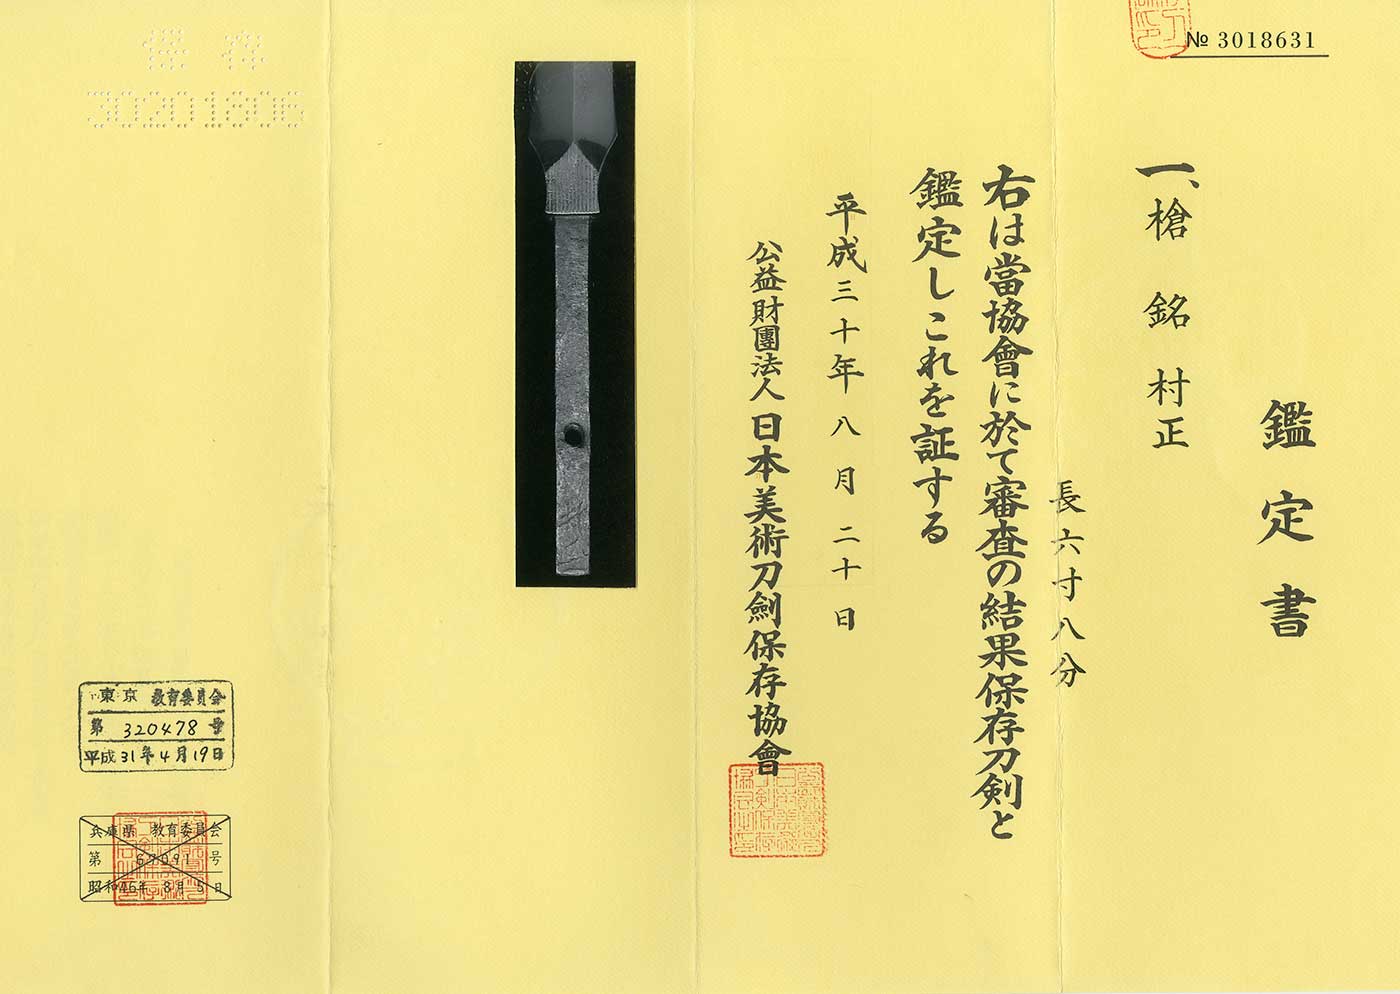 № 3018631
鑑定書
一、槍 銘 村正
長六寸八分
右は當協會に於て審査の結果保存刀剣と
鑑定しこれを証する
平成三十年八月二十日
公益財團法人日本美術刀劍保存協會
保存
30201806
東京 教育委員会
第 320478 号
平成 31年 4月 19日
兵庫県 教育委員会
号
昭和46年 8月 5日